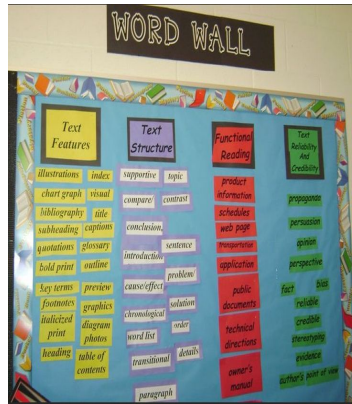 WORD WALL
Text
Features
illustrations index
chart graph visual
bibliography title
subheading captions
quotations glossary
bold print outline
key terms preview
footnotes graphics
italicized
print
diagram
photos
heading
table of
contents
Text
Structure
supportive topic
compare/ contrast
conclusion,
sentence
introduction
problem/
cause/effect
solution
chronological
order
word list
transitional details
paragraph
Functional
Reading
product
information
schedules
web page
transportation
application
public
documents
technical
directions
owner's
manual
Text
Reliability
And
Credibility
propaganda
persuasion
opinion
perspective
fact bias
reliable
credible
stereotyping
evidence
author's point of view